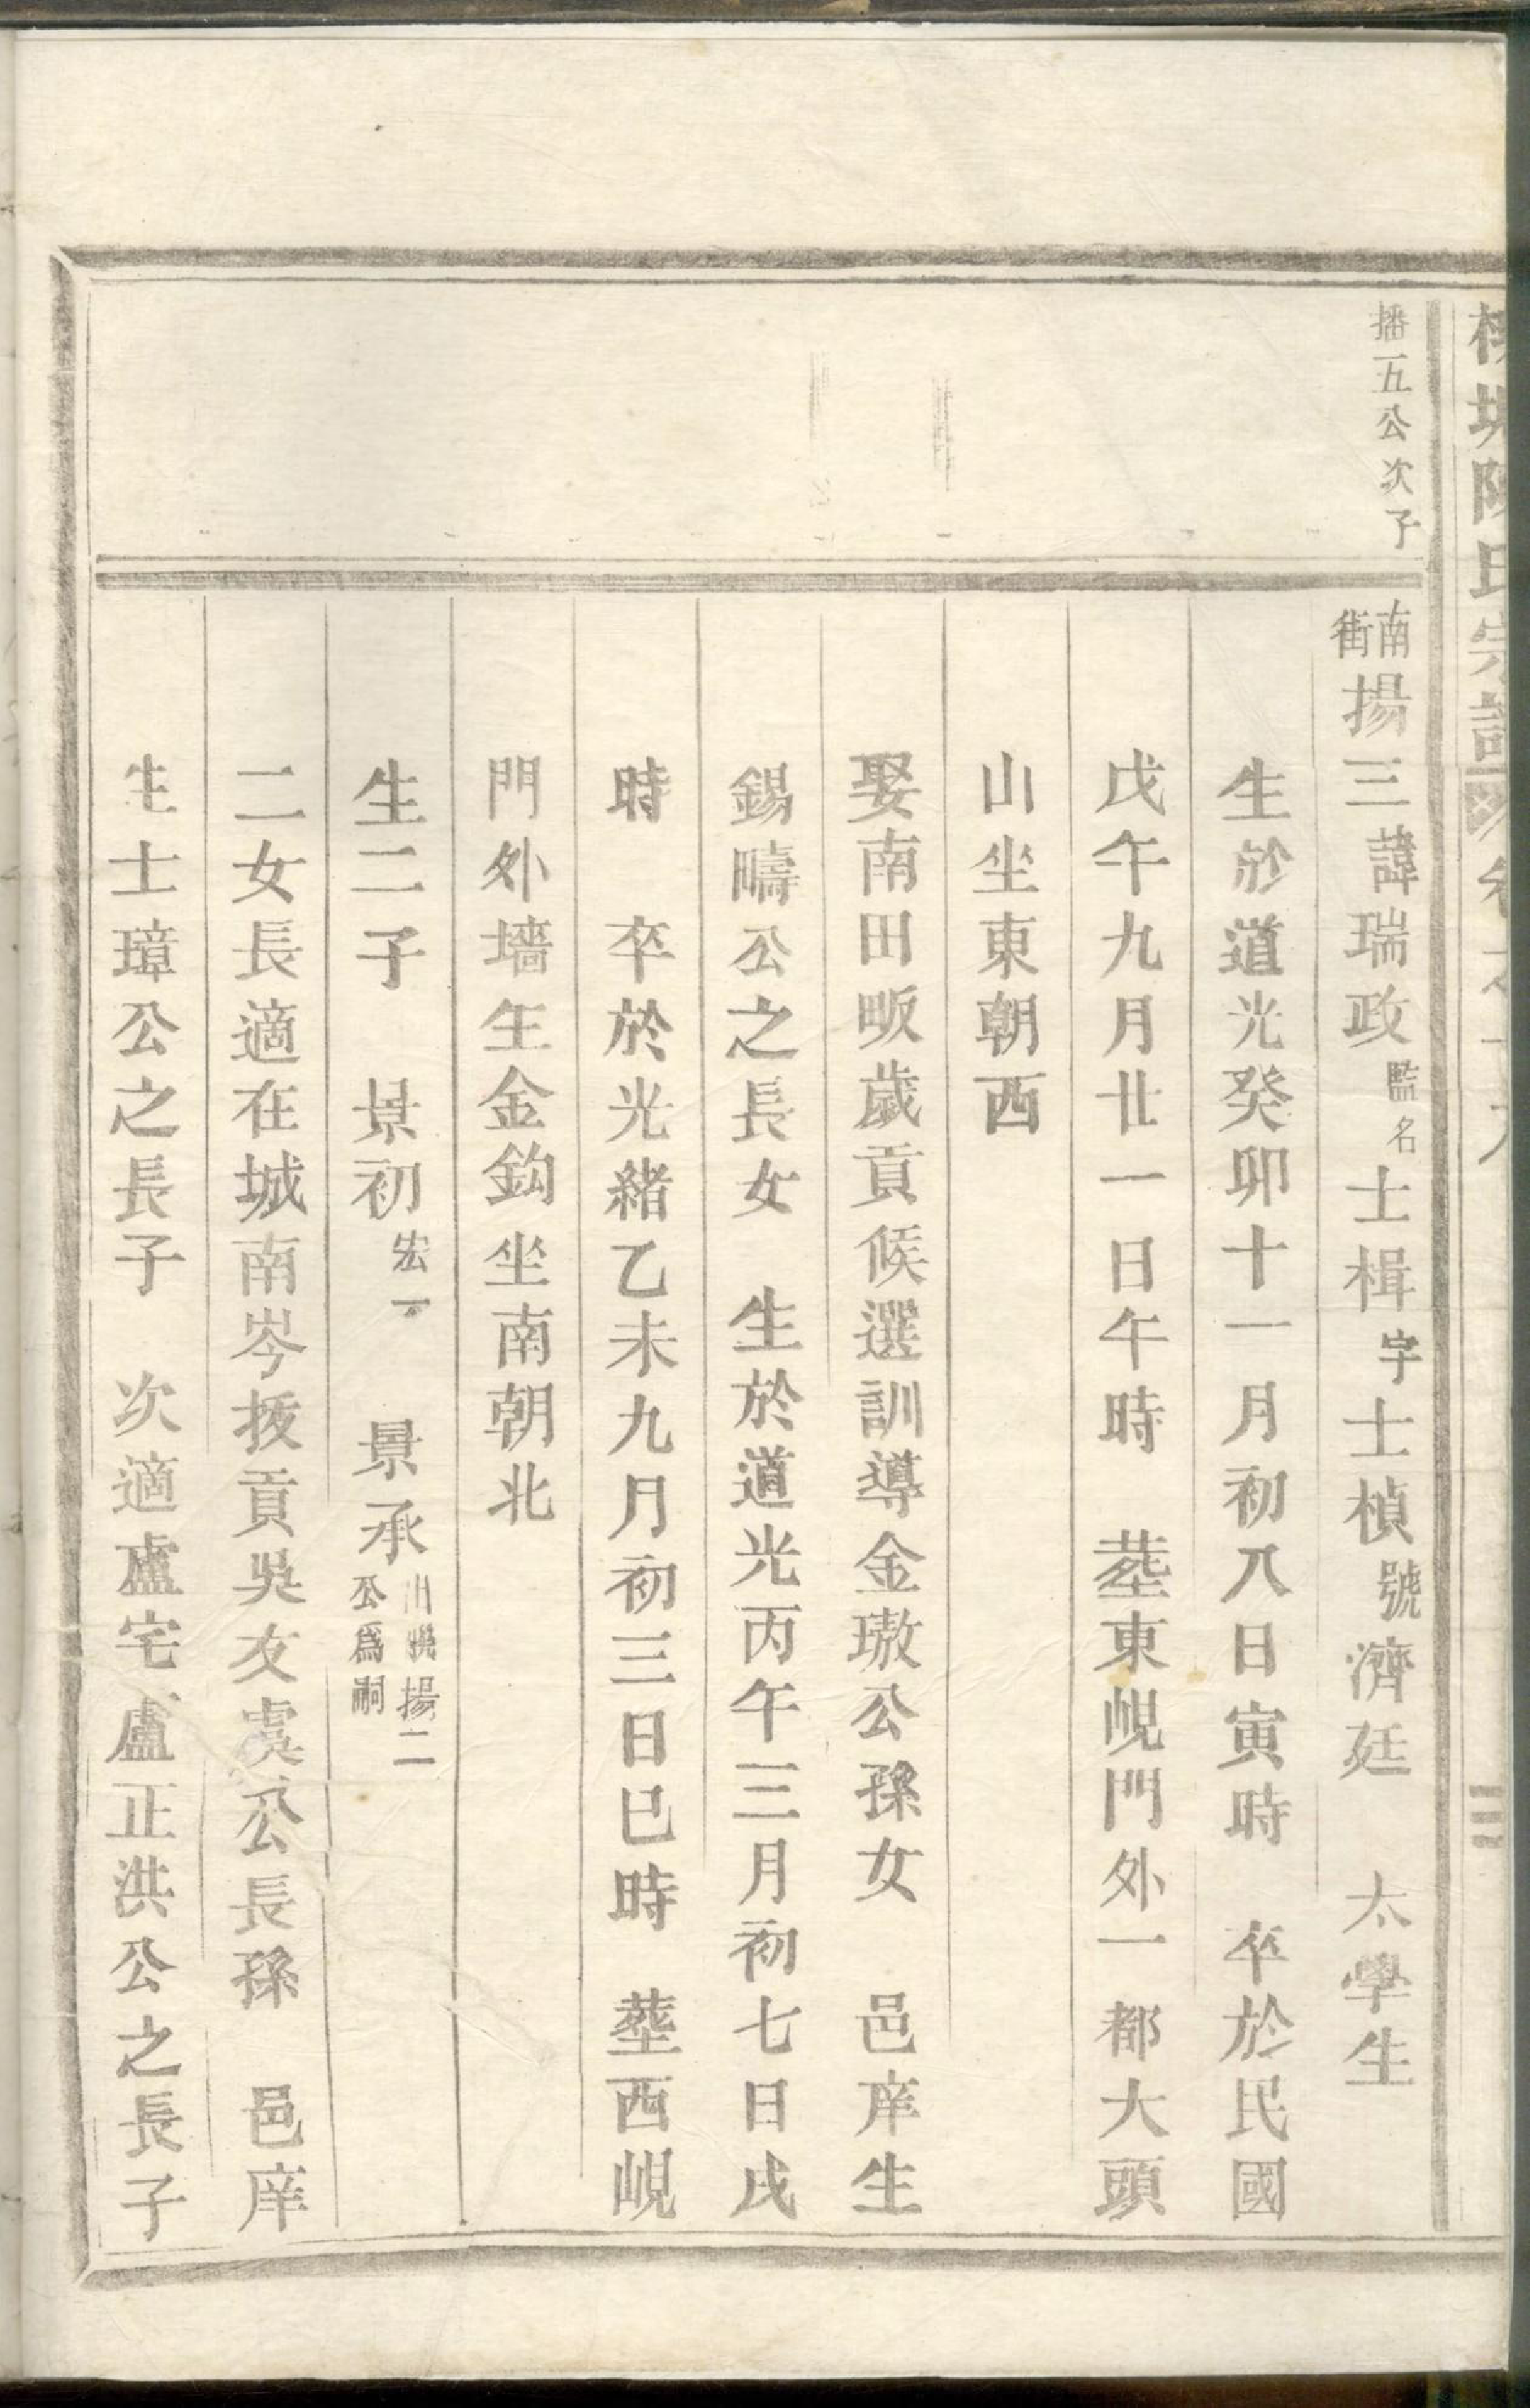 陳氏宗譜
播五公次子
南街揚三諱瑞政監名士楫字士楨號濟廷　太學生
生於道光癸卯十一月初八日寅時　卒於民國
戊午九月廿一日午時　塟東峴門外一都大頭
山坐東朝西
娶南田畈歲貢候選訓導金璈公孫女　邑庠生
錫疇公之長女　生於道光丙午三月初七日戌
時　卒於光緒乙未九月初三日巳時　塟西峴
門外墻生金鈎坐南朝北
生二子　景初宏一　景承出揚二公爲嗣
二女長適在城南岑拔貢吳友虞公長孫　邑庠
生士璋公之長子　次適盧宅盧正洪公之長子